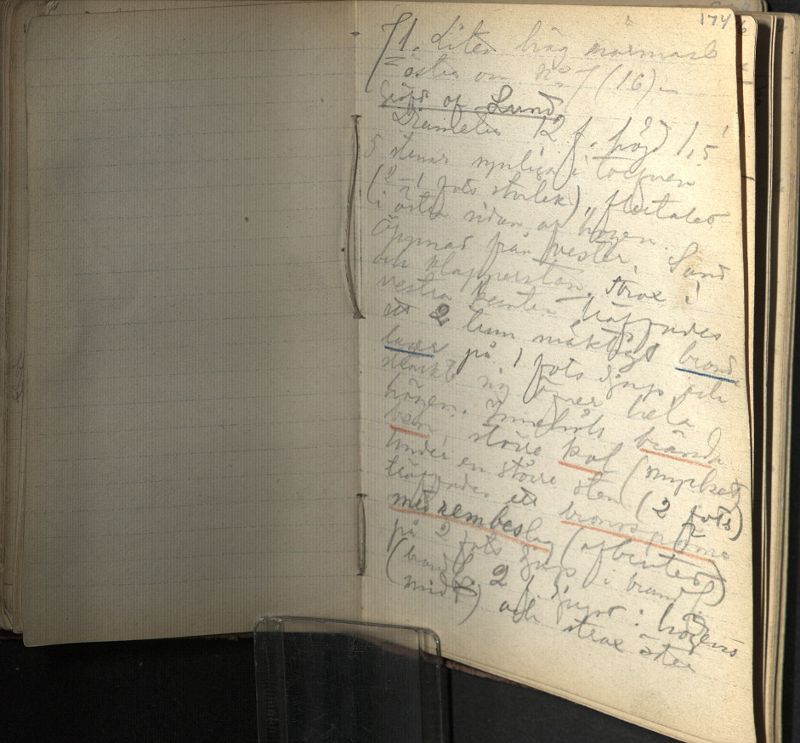 174
71. Liten hög närmast
öster om N:o 7 (16)
Gräfd af Lund
Diameter 12 f. höjd 1,5
5 stenar synliga i toppen
(2-1 fots storlek), flertalet
i östra sidan av högen.
Öppnad från vester. Sand
och klappersten. Strax i
vestra kanten träffades
ett 2 tum mäktigt brand
lager på 1 fots djup och
sträckt sig öfver hela
högen. Innehöll brända
ben, större kol (mycket)
Under en större sten (2 fots)
träffades ett bronsspänne
med rembeslag (afbrutet)
på 2 fots djup i brand
(brandl. 2 f. djup i högens
midt) och strax öster